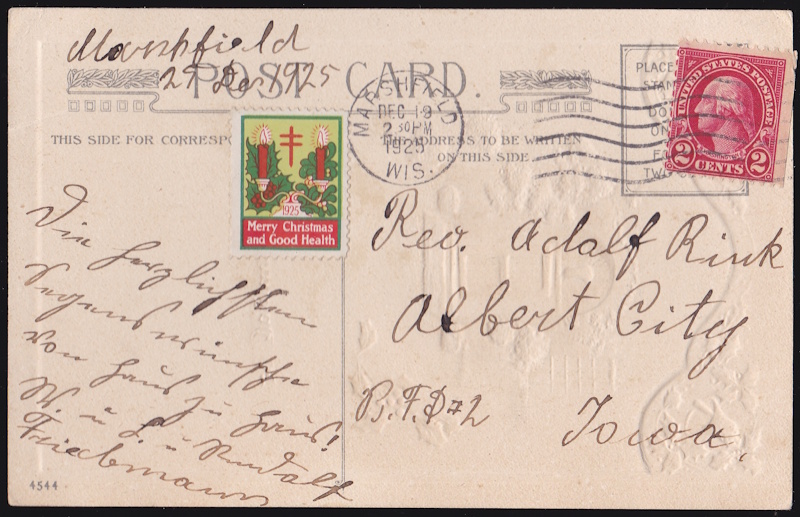 Marshfield
29 Dec 1925
POST CARD.
THIS SIDE FOR CORRESPO
THIS ADDRESS TO BE WRITTEN
ON THIS SIDE
MARSHFIELD
DEC 19
2 30 PM
1925
WIS.
PLACE
STAM
DO
ON
TWO
UNITED STATES POSTAGE
2 CENTS 2
1925
Merry Christmas
and Good Health
Die herzlichsten
Segenswünsche
von Haus zu Haus!
W. u. L. u. Rudolf
Friebmann
Rev. Adalf Rink
Albert City
R.F.D #2
Iowa.
4544